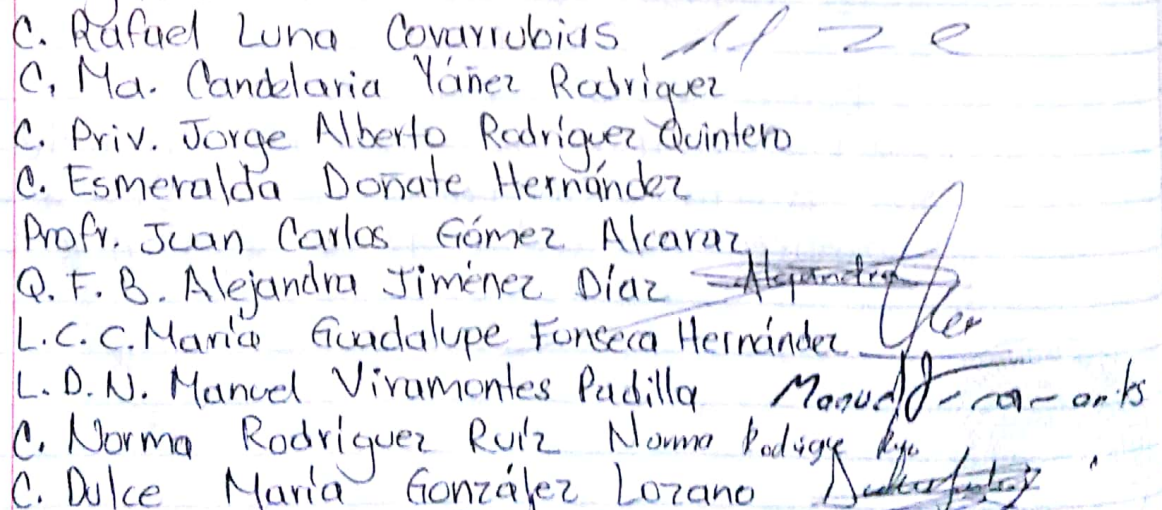 C. Rafael Luna Covarrubias
C. Ma. Candelaria Yáñez Rodríguez
C. Priv. Jorge Alberto Rodríguez Quintero
C. Esmeralda Doñate Hernández
Profr. Juan Carlos Gómez Alcaraz
Q. F. B. Alejandra Jiménez Díaz Alejandra
L. C. C. María Guadalupe Fonseca Hernández
L. D. N. Manuel Viramontes Padilla Manuel
C. Norma Rodríguez Ruíz Norma
C. Dulce María González Lozano